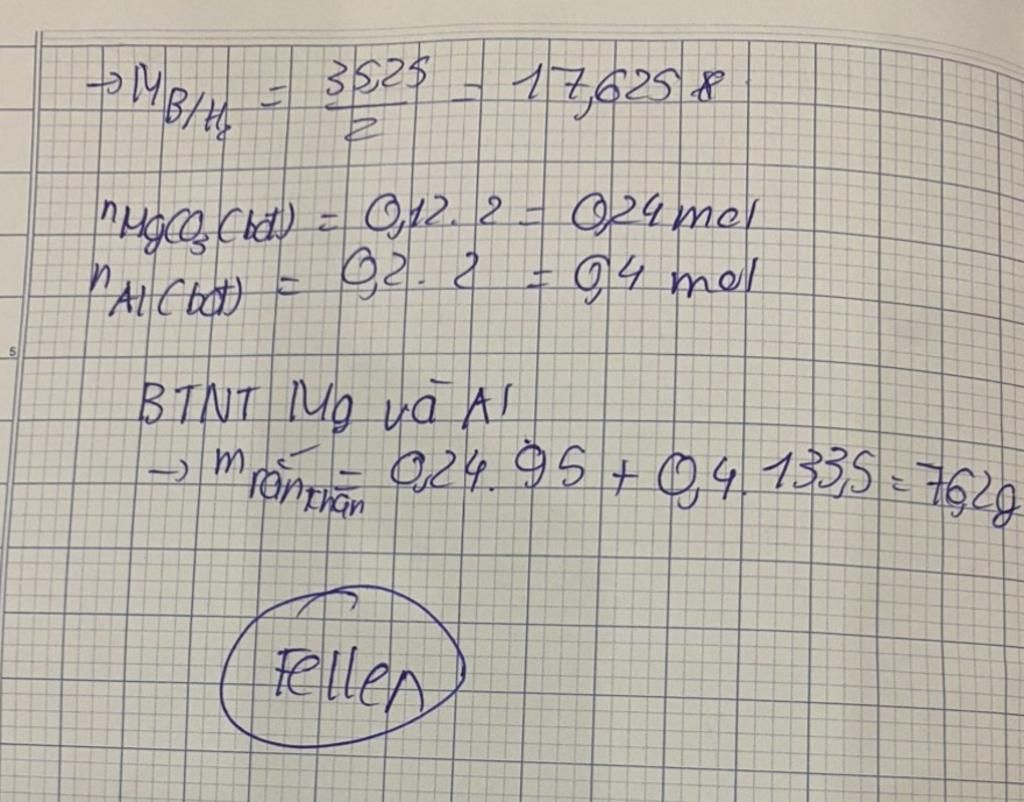 → M B/H₂ = 35,25/2 = 17,625
n MgCO₃ (bđ) = 0,12 . 2 = 0,24 mol
n Al (bđ) = 0,2 . 2 = 0,4 mol
5
BTNT Mg và Al
→ m rắn khan = 0,24 . 95 + 0,4 . 133,5 = 76,2g
Fellen